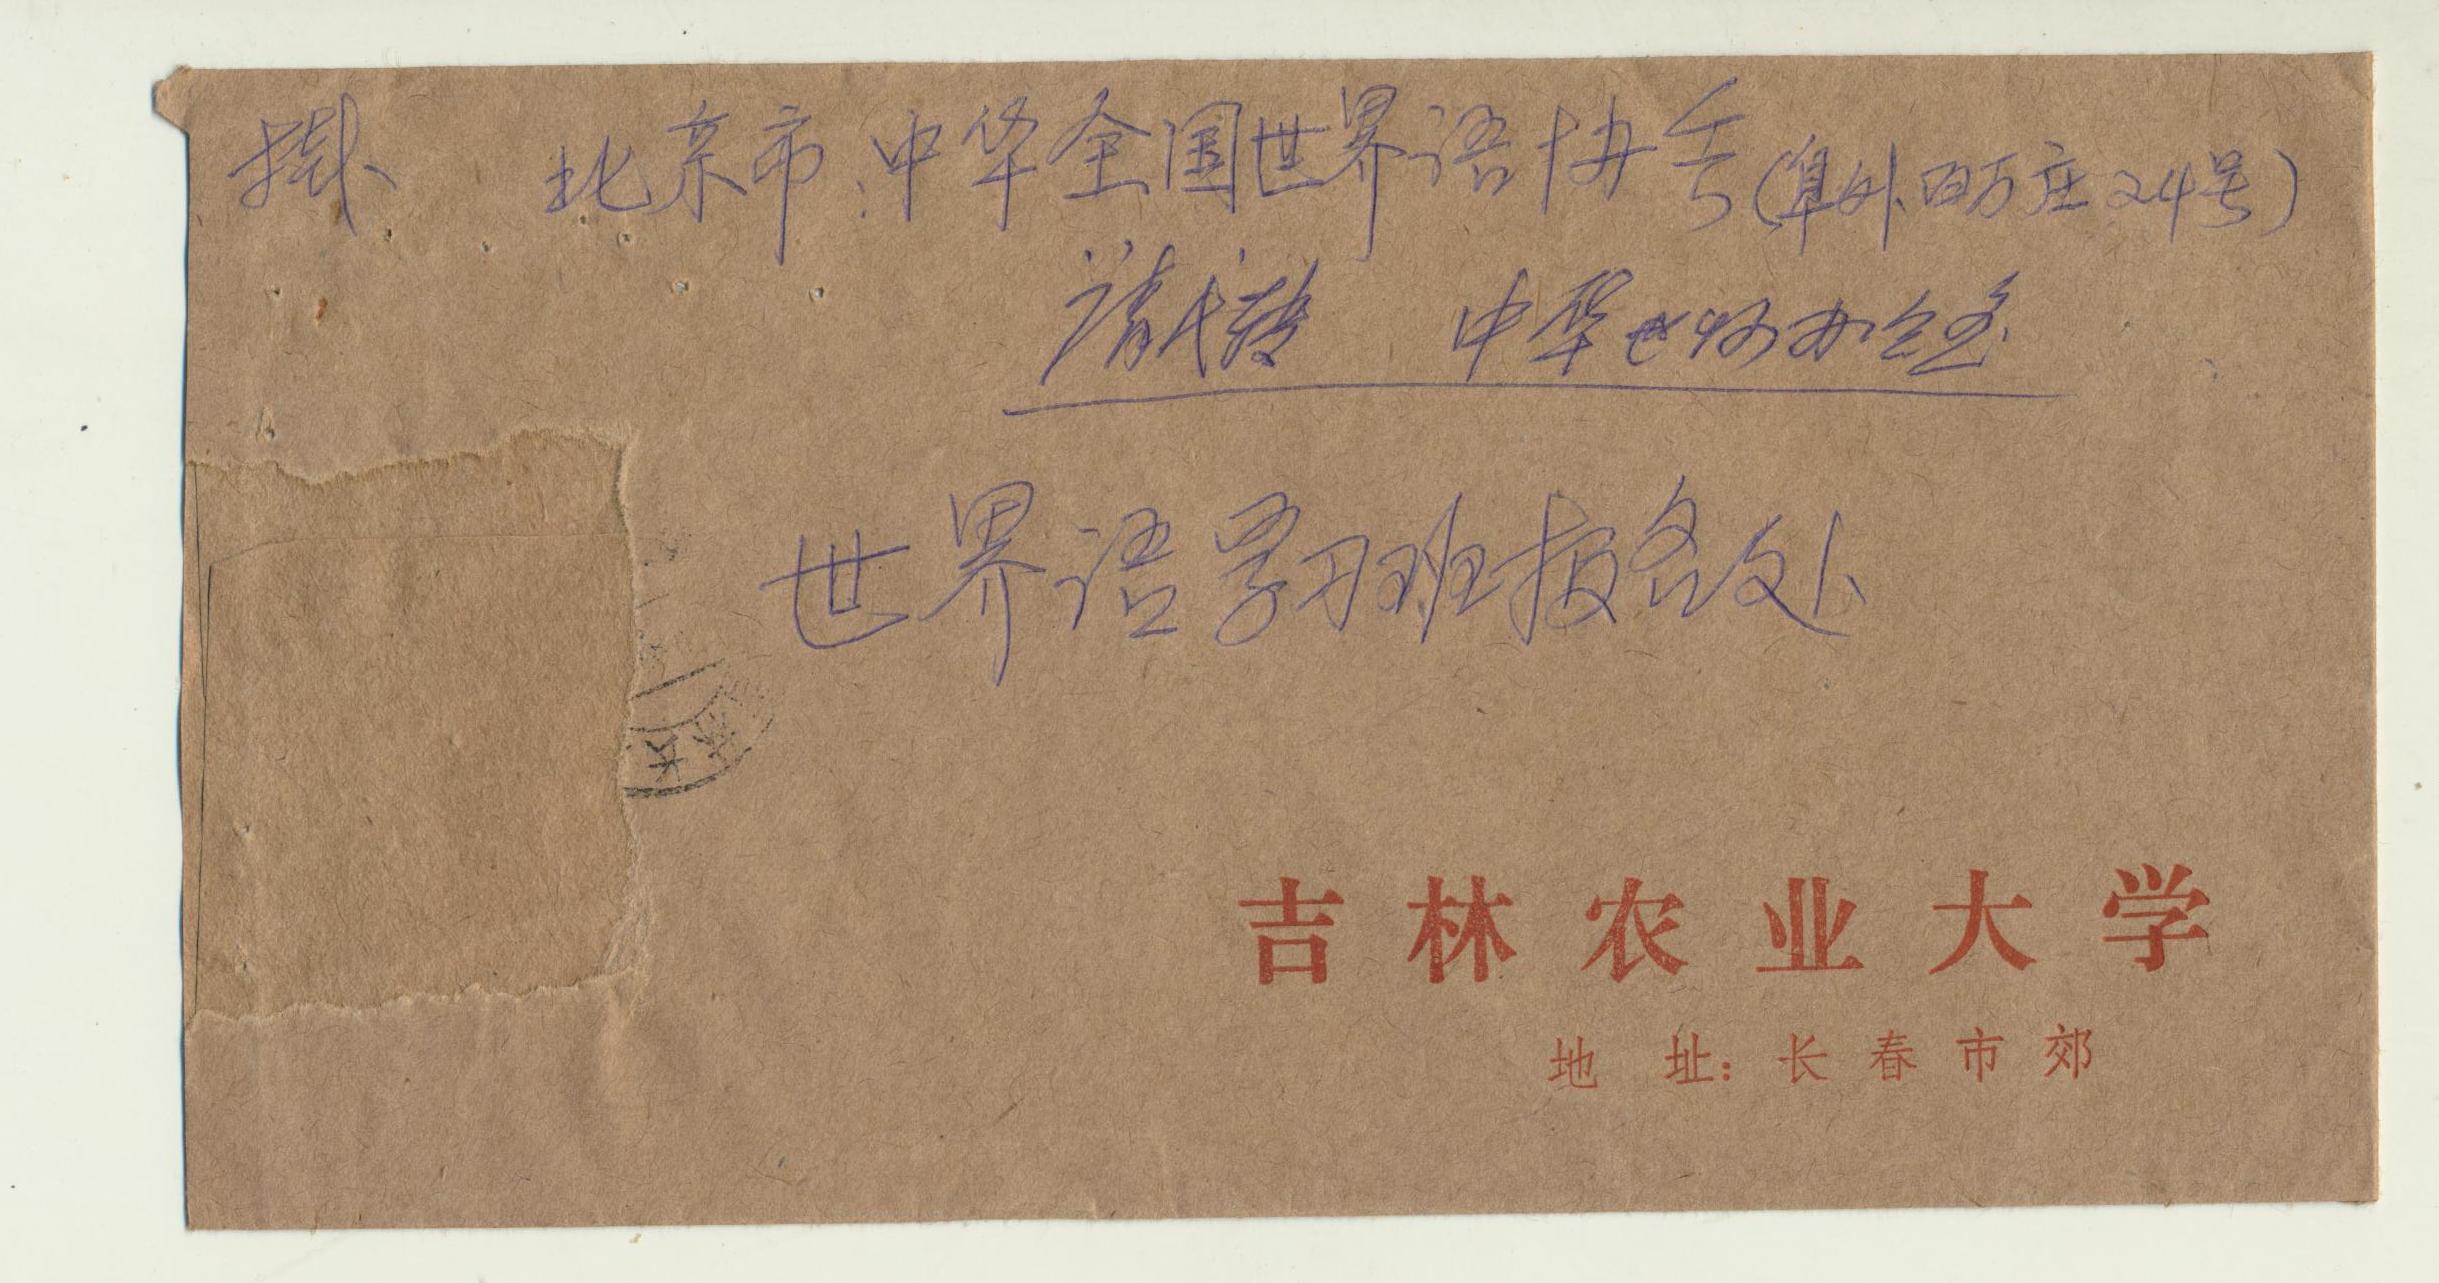 掛 北京市 中华全国世界语协会(阜外百万庄24号)
请代转 中华世协办公室
世界语学习班报名处
长
吉林农业大学
地 址：长春市郊